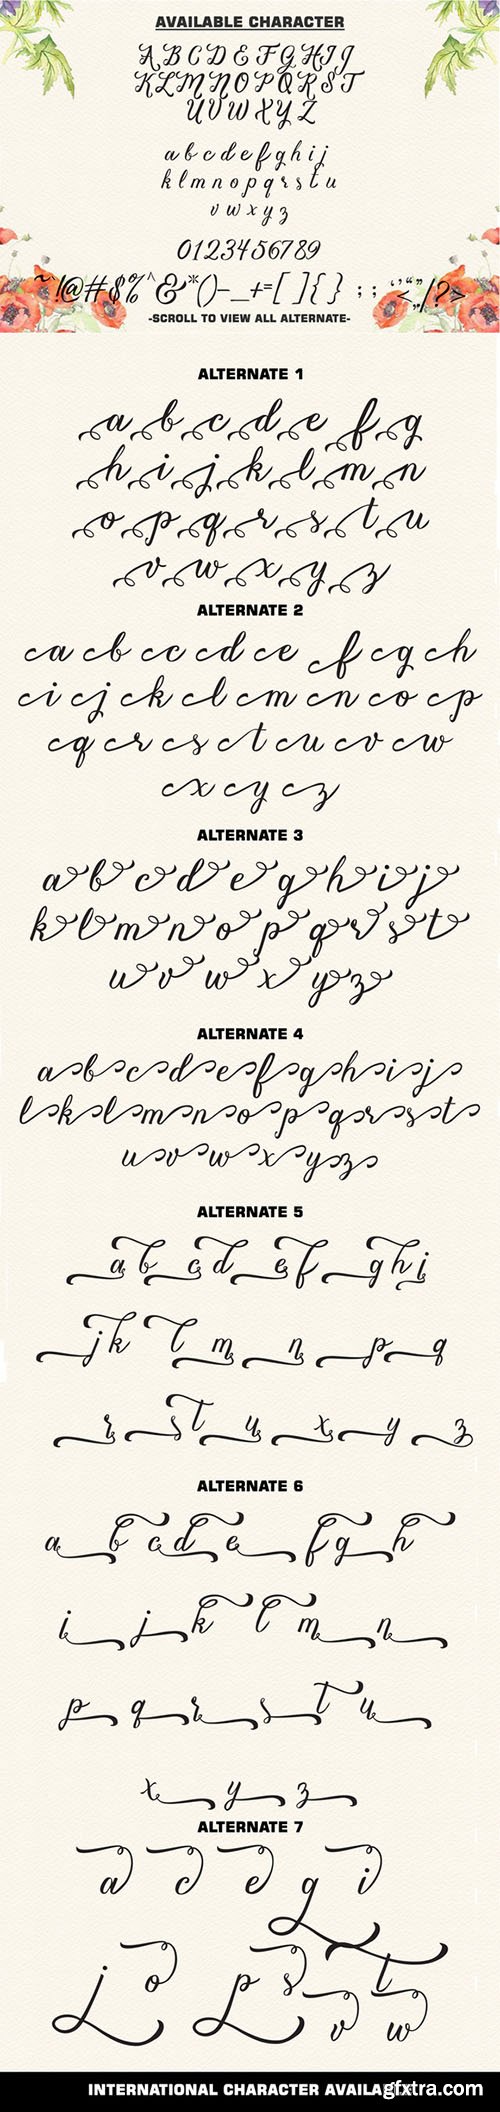 AVAILABLE CHARACTER
A B C D E F G H I J
K L M N O P Q R S T
U V W X Y Z
a b c d e f g h i j
k l m n o p q r s t u
v w x y z
0123456789
~`!@#$%^&*()-_+=[ ]{ } : ; ‘ ’ “ ” < , . / ? >
-SCROLL TO VIEW ALL ALTERNATE-
ALTERNATE 1
a b c d e f g
h i j k l m n
o p q r s t u
v w x y z
ALTERNATE 2
ca cb cc cd ce f cg ch
ci cj ck cl cm cn co cp
cq cr cs ct cu cv cw
cx cy cz
ALTERNATE 3
a b c d e g h i j
k l m n o p q r s t
u v w x y z
ALTERNATE 4
a b c d e f g h i j
l k l m n o p q r s t
u v w x y z
ALTERNATE 5
a b c d e f g h i
j k l m n p q
r s t u x y z
ALTERNATE 6
a b c d e f g h
i j k l m n
p q r s t u
x y z
ALTERNATE 7
a c e g i
j o p s t
v w
INTERNATIONAL CHARACTER AVAILA
gfxtra.com